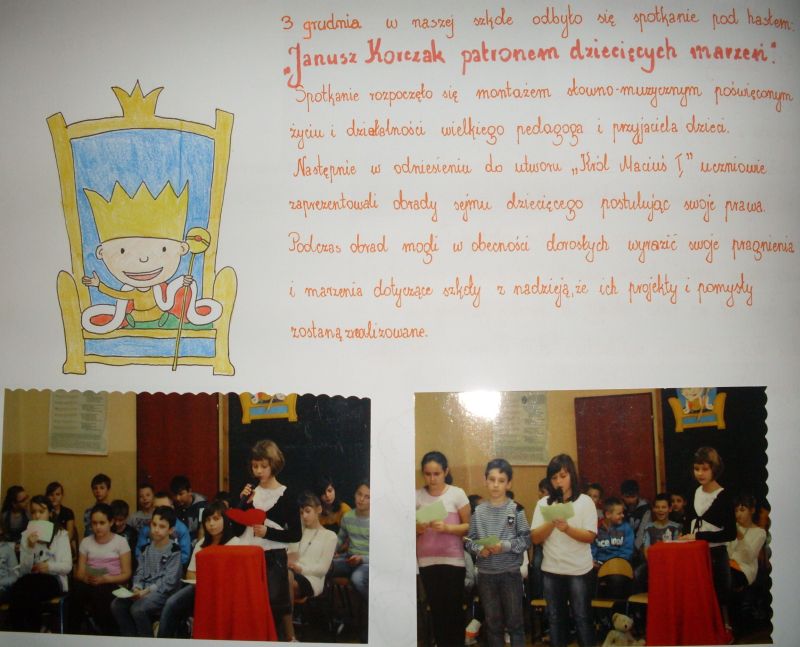 3 grudnia w naszej szkole odbyło się spotkanie pod hasłem:
"Janusz Korczak patronem dziecięcych marzeń".
Spotkanie rozpoczęło się montażem słowno-muzycznym poświęconym
życiu i działalności wielkiego pedagoga i przyjaciela dzieci.
Następnie w odniesieniu do utworu „Król Maciuś I" uczniowie
zaprezentowali obrady sejmu dziecięcego postulując swoje prawa.
Podczas obrad mogli w obecności dorosłych wyrazić swoje pragnienia
i marzenia dotyczące szkoły z nadzieją, że ich projekty i pomysły
zostaną zrealizowane.